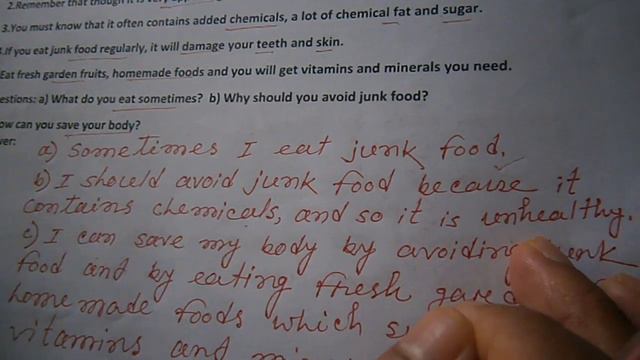 2.Remember that though it is very
3.You must know that it often contains added chemicals, a lot of chemical fat and sugar.
.If you eat junk food regularly, it will damage your teeth and skin.
Eat fresh garden fruits, homemade foods and you will get vitamins and minerals you need.
estions: a) What do you eat sometimes? b) Why should you avoid junk food?
ow can you save your body?
wer:
a) Sometimes I eat junk food.
b) I should avoid junk food because it
contains chemicals, and so it is unhealthy.
c) I can save my body by avoiding
food and by eating fresh
home made foods which
vitamins and